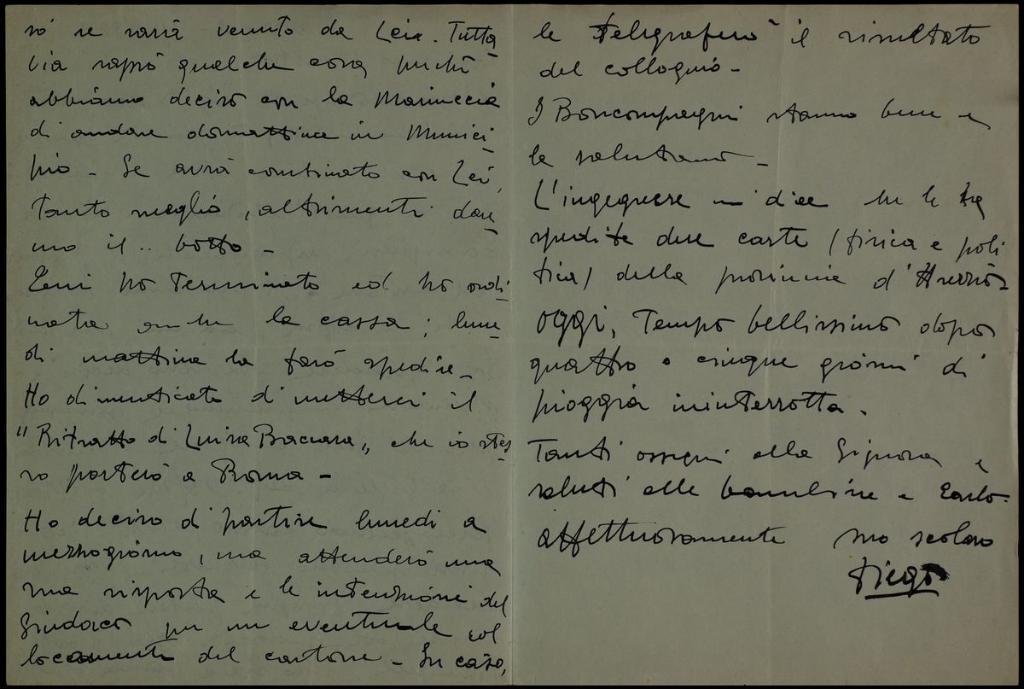 sò se sarà venuto da Lei. Tutta
via saprò qualche cosa perchè
abbiamo deciso con la Mariuccia
di andare domattina in Munici
pio - Se avrà combinato con Lei,
tanto meglio, altrimenti dare
mo il .. botto -
Ieri ho terminato ed ho ordi
nata anche la cassa; lune
dì mattina la farò spedire -
Ho dimenticato di metterci il
"Ritratto di Luisa Baccara„ che io stes
so porterò a Roma -
Ho deciso di partire lunedì a
mezzogiorno, ma attenderò una
sua risposta e le intenzioni del
Sindaco per un eventuale col
locamento del cartone - In caso,
le telegraferò il risultato
del colloquio -
I Boncompagni stanno bene e
la salutano -
L'ingegnere mi dice che le ha
spedite due carte (fisica e poli
tica) della provincia d'Arezzo -
Oggi, tempo bellissimo dopo
quattro o cinque giorni di
pioggia ininterrotta.
Tanti ossequi alla Signora e
saluti alle bambine e Carlo -
affettuosamente suo scolaro
Diego